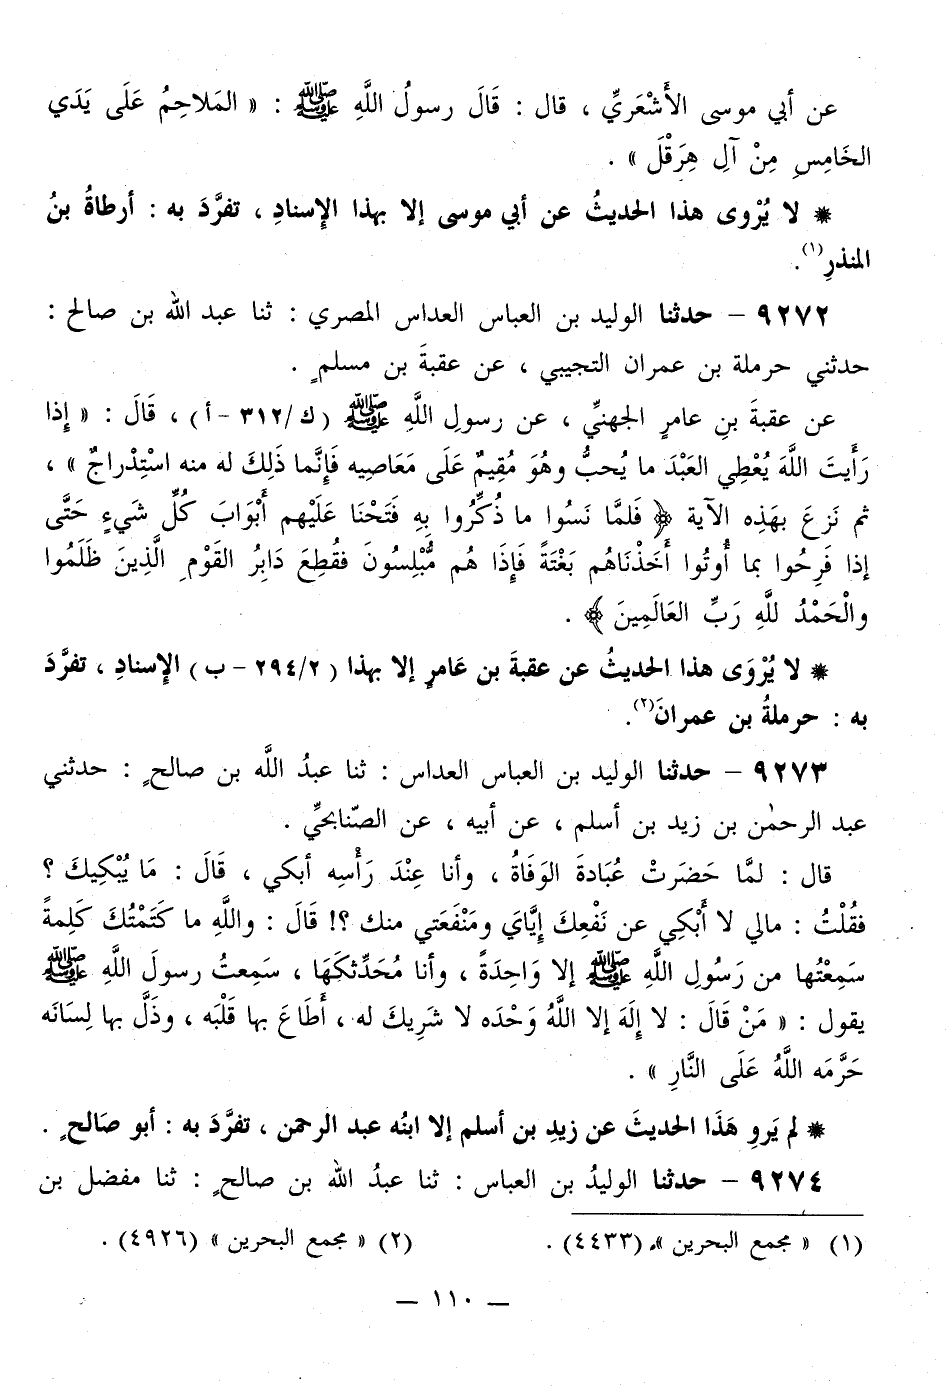 عن أبي موسى الأَشْعَريِّ ، قال : قَالَ رسولُ اللَّهِ ﷺ : « المَلاحِمُ عَلَى يَدَي
الخَامِسِ مِنْ آلِ هِرَقْلَ » .
* لا يُرْوى هذا الحديثُ عن أبي موسى إلا بهذا الإِسنادِ ، تفرَّدَ به : أرطاةُ بنُ
المنذرِ(١).
٩٢٧٢ – حدثنا الوليد بن العباس العداس المصري : ثنا عبد الله بن صالح :
حدثني حرملة بن عمران التجيبي ، عن عقبةَ بن مسلمٍ .
عن عقبةَ بنِ عامرٍ الجهنيِّ ، عن رسولِ اللَّهِ ﷺ (ك/٣١٢ – أ) ، قَالَ : « إِذا
رَأَيتَ اللَّهَ يُعْطِي العَبْدَ ما يُحبُّ وهُوَ مُقِيمٌ عَلَى مَعَاصِيه فَإِنَّما ذَلِكَ له منه اسْتِدْراجٌ » ،
ثم نَزعَ بهَذِه الآية ﴿ فَلمَّا نَسُوا ما ذُكِّرُوا بِهِ فَتَحْنَا عَلَيْهم أَبْوَابَ كُلِّ شَيءٍ حَتَّى
إذا فَرِحُوا بما أُوتُوا أَخَذْنَاهُم بَغْتَةً فَإِذَا هُم مُّبْلِسُونَ فقُطِعَ دَابِرُ القَوْمِ الَّذِينَ ظَلَمُوا
والْحَمْدُ للَّهِ رَبِّ العَالَمِينَ ﴾ .
* لا يُرْوَى هذا الحديثُ عن عقبةَ بن عَامرٍ إلا بهذا (٢/ ٢٩٤ – ب) الإِسنادِ ، تفرَّدَ
به : حرملةُ بن عمرانَ(٢).
٩٢٧٣ – حدثنا الوليد بن العباس العداس : ثنا عبدُ اللَّه بن صالحٍ : حدثني
عبد الرحمٰن بن زيد بن أسلم ، عن أبيه ، عن الصّنابحيِّ .
قال : لمَّا حَضَرَتْ عُبَادةَ الوَفَاةُ ، وأنا عِنْدَ رَأْسِه أبكي ، قَالَ : مَا يُبْكِيكَ ؟
فقُلْتُ : مالي لا أَبْكِي عن نَفْعِكَ إِيَّايَ ومَنْفَعَتي منك ؟! قَالَ : واللَّهِ ما كَتَمْتُكَ كَلِمةً
سَمِعْتُها من رَسُولِ اللَّهِ ﷺ إلا وَاحِدَةً ، وأنا مُحَدِّثكَهَا ، سَمِعتُ رسولَ اللَّهِ ﷺ
يقول : « مَنْ قَالَ : لا إِلَهَ إلا اللَّهُ وَحْدَه لا شَرِيكَ له ، أَطَاعَ بها قَلْبَه ، وذَلَّ بها لِسَانَه
حَرَّمَه اللَّهُ عَلَى النَّارِ » .
* لم يَروِ هَذَا الحديثَ عن زيدِ بن أسلم إلا ابنُه عبد الرحمن ، تفرَّدَ به : أبو صَالحٍ .
٩٢٧٤ – حدثنا الوليدُ بن العباس : ثنا عبدُ الله بن صالحٍ : ثنا مفضل بن
(١) « مجمع البحرين » (٤٤٣٣) . (٢) « مجمع البحرين » (٤٩٢٦) .
– ١١٠ –